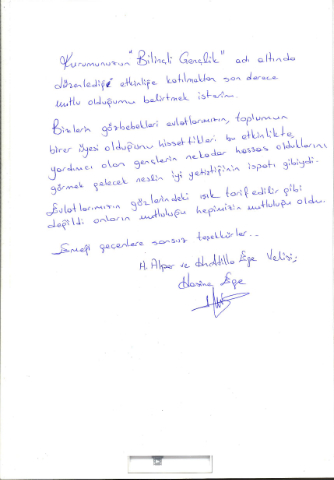 Kurumunuzun "Bilinçli Gençlik" adı altında
düzenlediği etkinliğe katılmaktan son derece
mutlu olduğumu belirtmek isterim.
Bizlerin gözbebekleri evlatlarımızın, toplumun
birer üyesi olduğunu hissettikleri bu etkinlikte,
yardımcı olan gençlerin nekadar hassas olduklarını
görmek gelecek neslin iyi yetiştiğinin ispatı gibiydi.
Evlatlarımızın gözlerindeki ışık tarif edilir gibi
değildi onların mutluluğu hepimizin mutluluğu oldu.
Emeği geçenlere sonsuz teşekkürler...
A. Alper ve Ege Velisi;
Ege